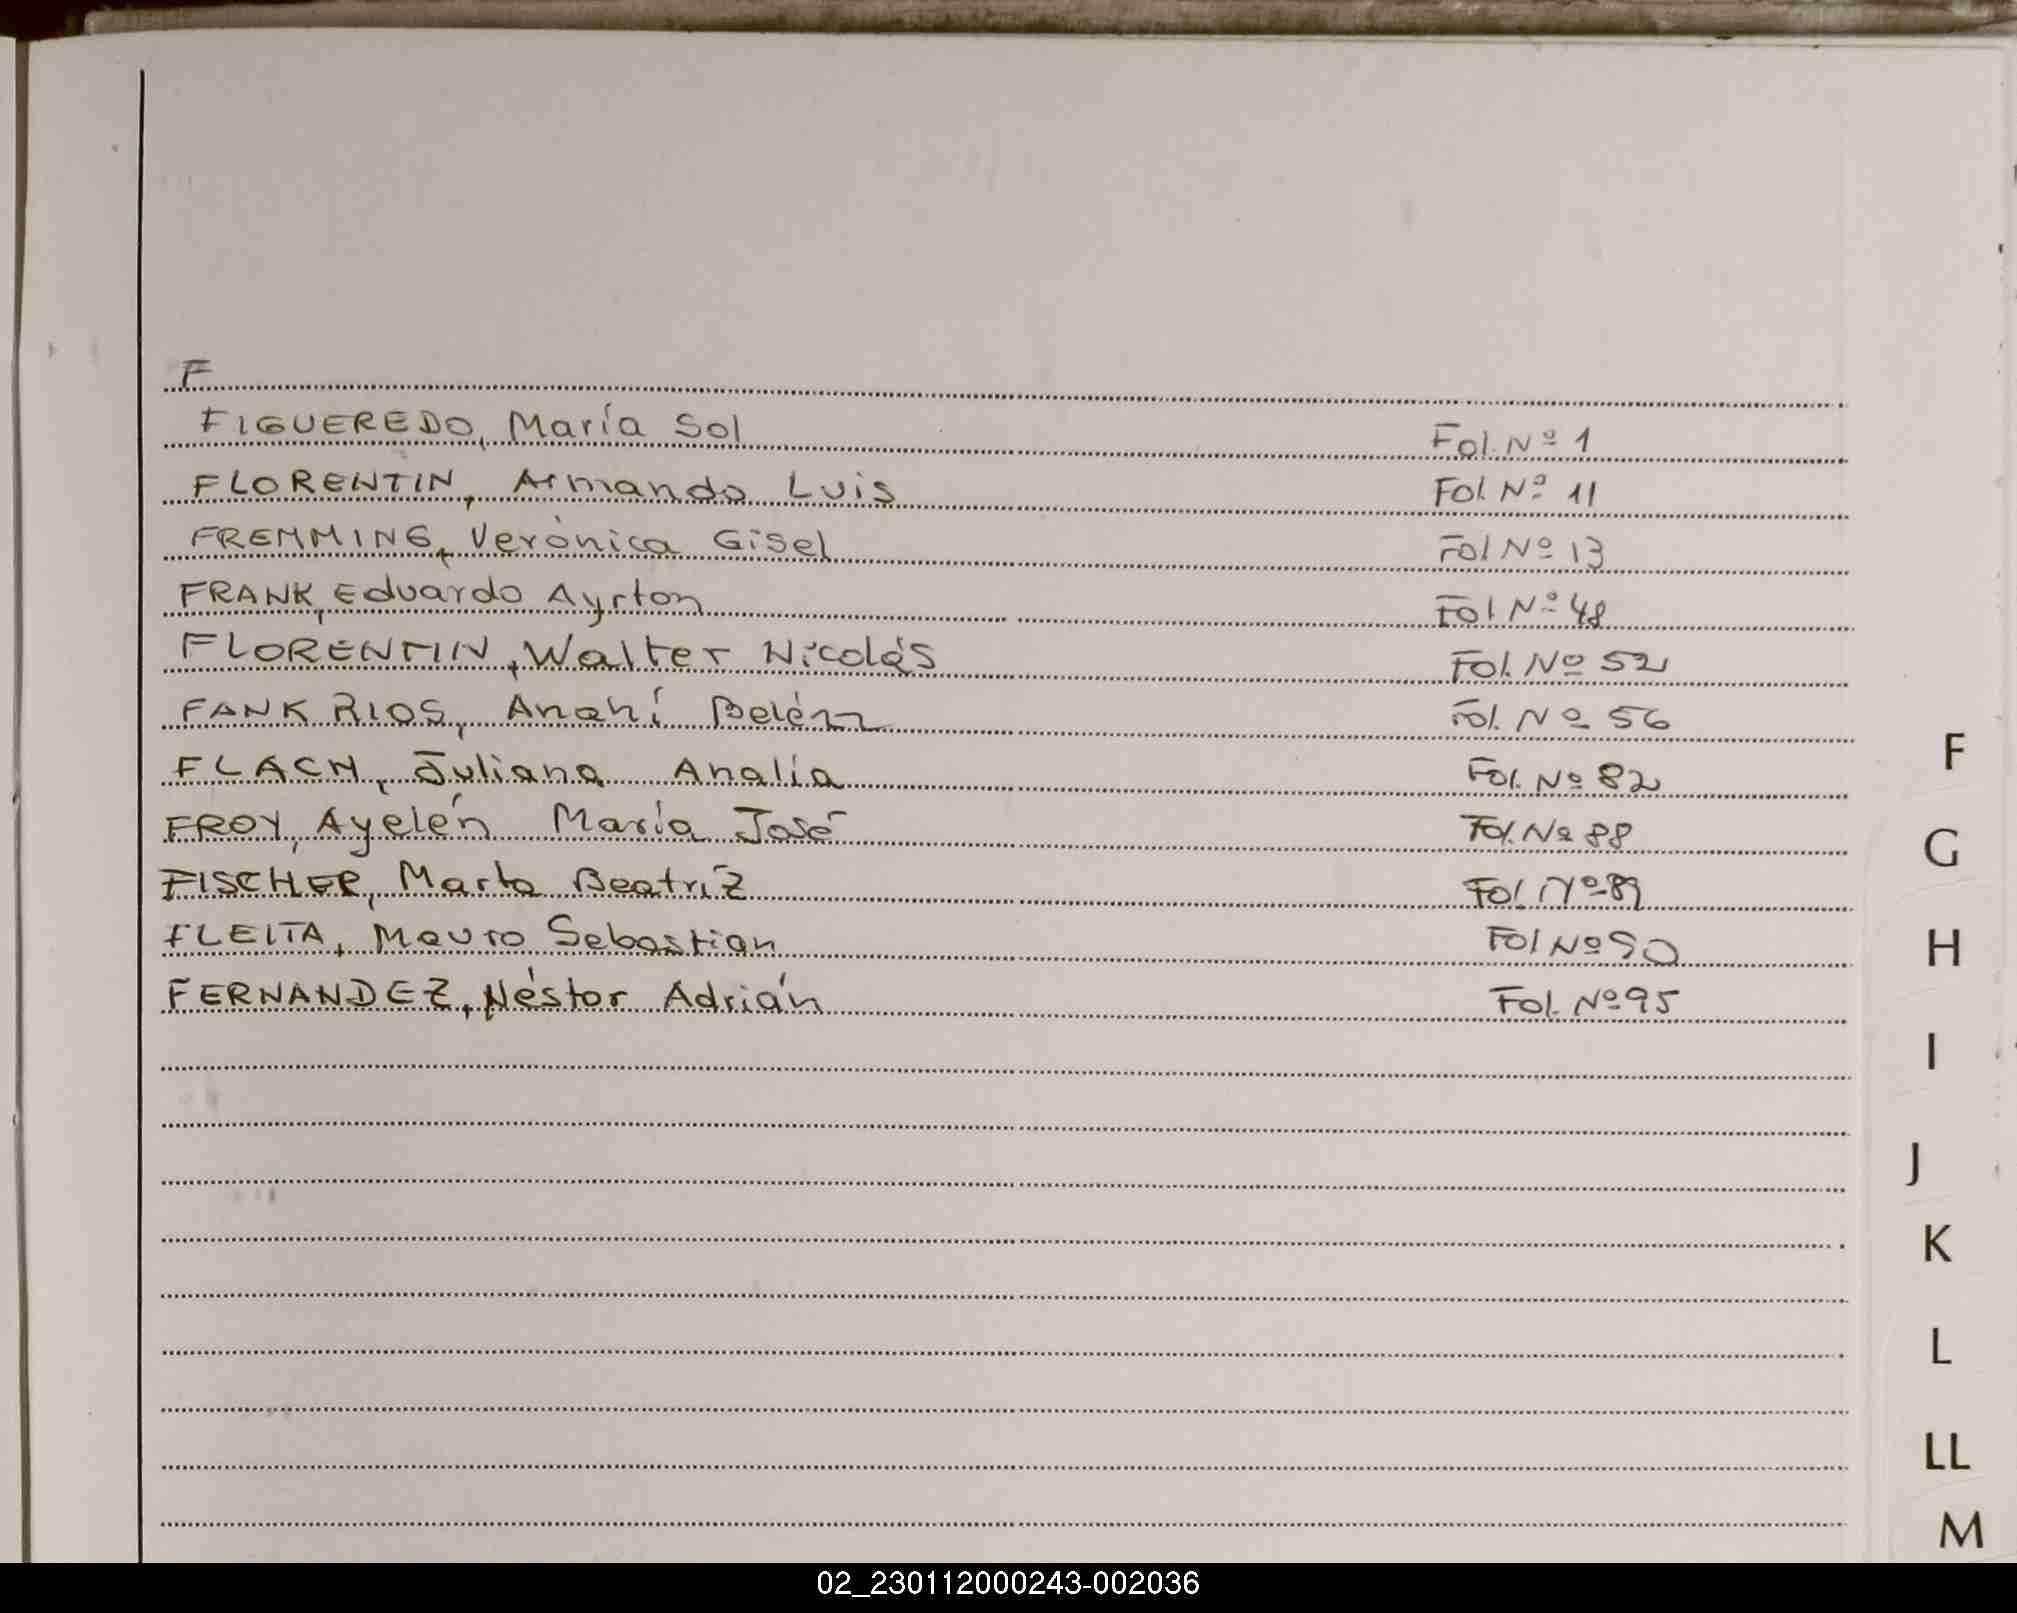 F
FIGUEREDO, María Sol Fol. Nº 1
FLORENTIN, Armando Luis Fol. Nº 11
FREMMING, Verónica Gisel Fol Nº 13
FRANK, Eduardo Ayrton Fol Nº 48
FLORENTIN, Walter Nicolás Fol. Nº 52
FANK RIOS, Anahí Belén Fol. Nº 56
FLACH, Juliana Analía Fol. Nº 82
FROY, Ayelén María José Fol. Nº 88
FISCHER, Marta Beatriz Fol Nº 89
FLEITA, Mauro Sebastian Fol Nº 90
FERNANDEZ, Néstor Adrián Fol. Nº 95
F
G
H
I
J
K
L
LL
M
02_230112000243-002036